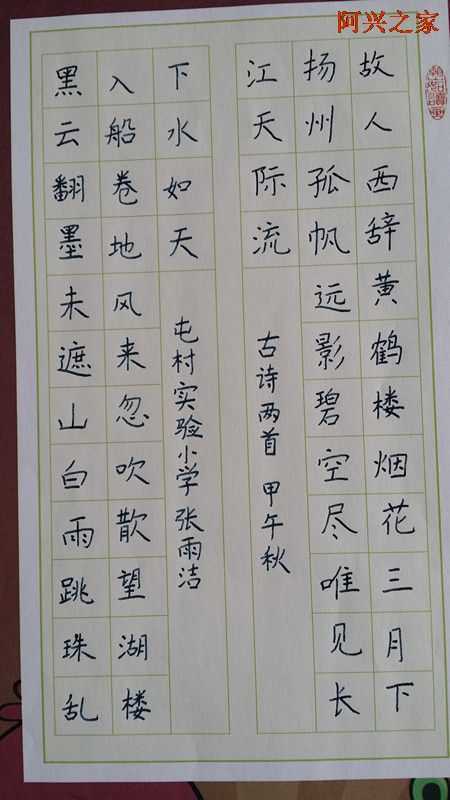 阿兴之家
故人西辞黄鹤楼烟花三月下
扬州孤帆远影碧空尽唯见长
江天际流
古诗两首 甲午秋
黑云翻墨未遮山白雨跳珠乱
入船卷地风来忽吹散望湖楼
下水如天
屯村实验小学 张雨洁